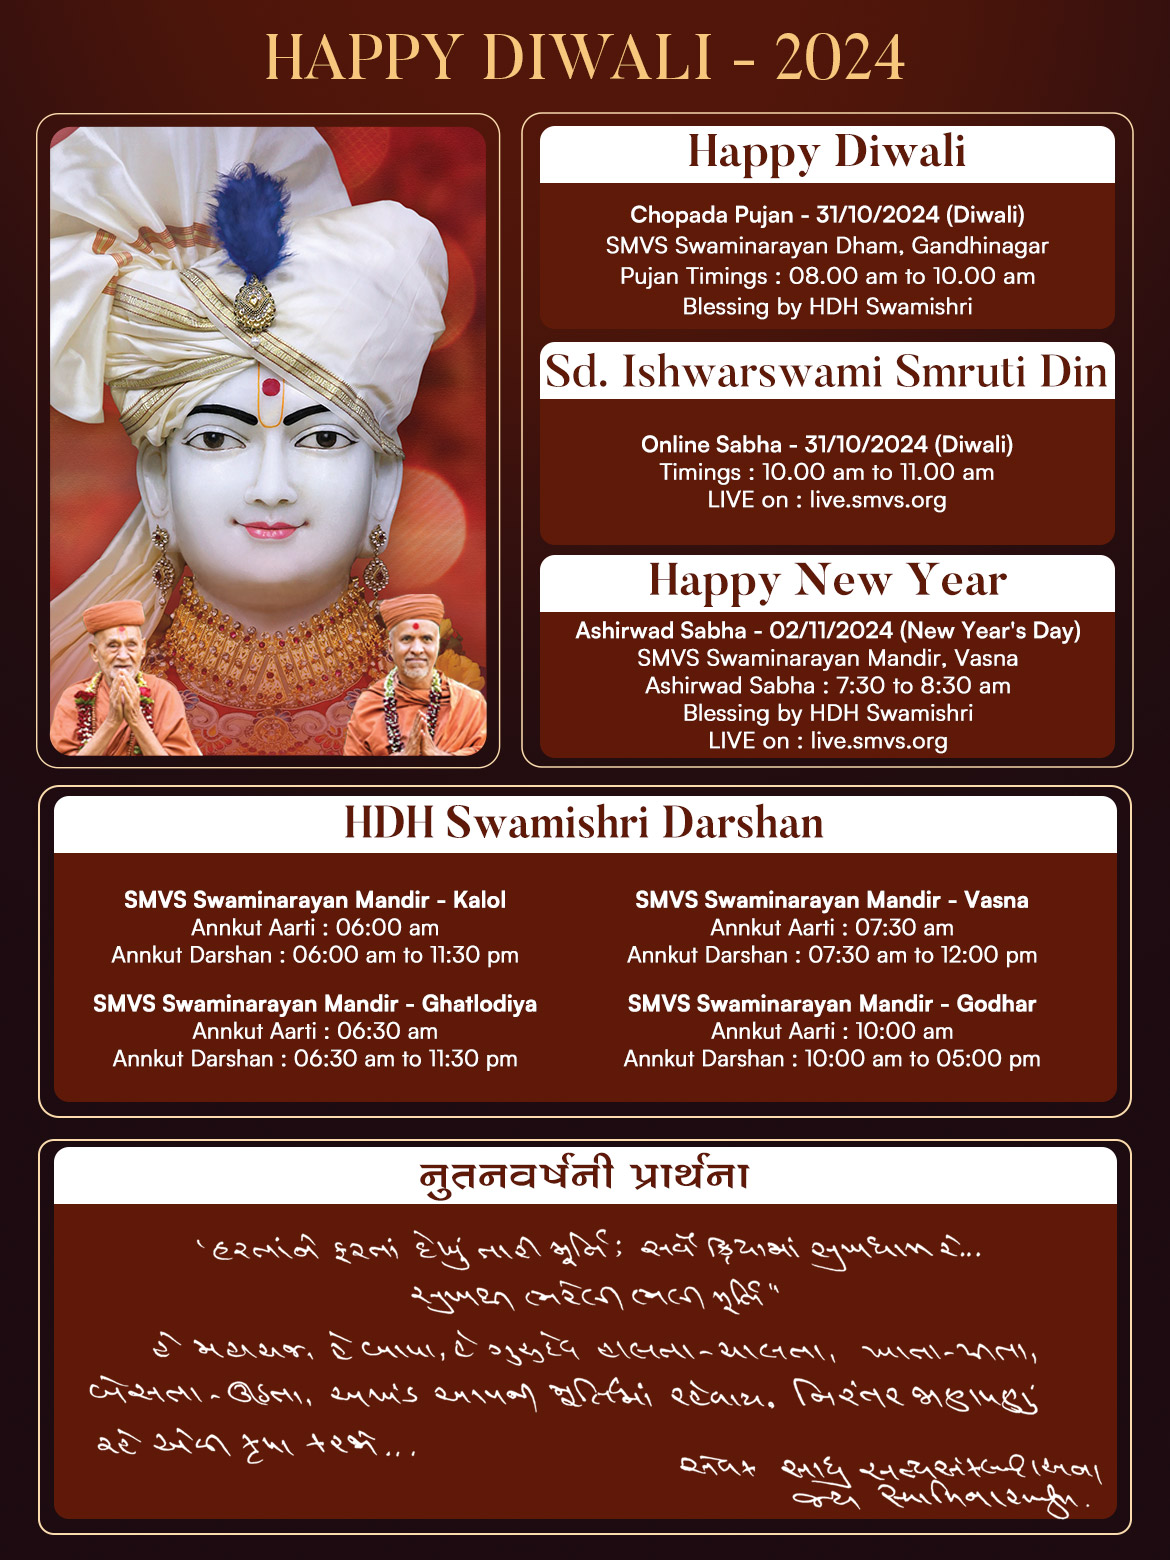 HAPPY DIWALI - 2024
Happy Diwali
Chopada Pujan - 31/10/2024 (Diwali)
SMVS Swaminarayan Dham, Gandhinagar
Pujan Timings : 08.00 am to 10.00 am
Blessing by HDH Swamishri
Sd. Ishwarswami Smruti Din
Online Sabha - 31/10/2024 (Diwali)
Timings : 10.00 am to 11.00 am
LIVE on : live.smvs.org
Happy New Year
Ashirwad Sabha - 02/11/2024 (New Year's Day)
SMVS Swaminarayan Mandir, Vasna
Ashirwad Sabha : 7:30 to 8:30 am
Blessing by HDH Swamishri
LIVE on : live.smvs.org
HDH Swamishri Darshan
SMVS Swaminarayan Mandir - Kalol
Annkut Aarti : 06:00 am
Annkut Darshan : 06:00 am to 11:30 pm
SMVS Swaminarayan Mandir - Vasna
Annkut Aarti : 07:30 am
Annkut Darshan : 07:30 am to 12:00 pm
SMVS Swaminarayan Mandir - Ghatlodiya
Annkut Aarti : 06:30 am
Annkut Darshan : 06:30 am to 11:30 pm
SMVS Swaminarayan Mandir - Godhar
Annkut Aarti : 10:00 am
Annkut Darshan : 10:00 am to 05:00 pm
नुतनवर्षनी प्रार्थना
‘હરતાંને ફરતાં દેખું તારી મૂર્તિ; સર્વે ક્રિયામાં સુખધામ રે...
સુખથી ભરેલી ભલી મૂર્તિ"
હે મહારાજ, હે બાપા, હે ગુરુદેવ હાલતા-ચાલતા, ખાતા-પીતા,
બેસતા-ઊઠતા, અખંડ આપની મૂર્તિમાં રહેવાય. નિરંતર
રહે એવી કૃપા કરજો...
સેવક સાધુ
જય સ્વામિનારાયણ.